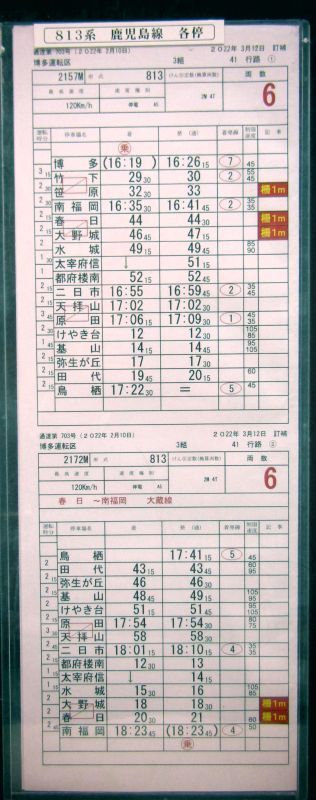 813系 鹿児島線 各停
達速 703号 (2022年 2月10日) 2022年 3月12日 訂補
博多運転区 3組 41 行路 ①
2157M 形式 813 けん引定数(換算両数) 両数
最高速度 速度種別 2M 4T 6
120Km/H 停電 A5
運転時分 停車場名 着 発(通) 着発線 制限速度 記事
乗
博多 (16:19 ) 16:26 15 7 45
3 15 竹下 29 30 30 2 55 45
2 笹原 32 30 33 柵1m
2 30 南福岡 16:35 30 16:41 45 2 35
2 15 春日 44 44 30 柵1m
2 15 大野城 46 45 47 15 柵1m
2 水城 49 15 49 45 85 90
1 30 太宰府信 ↓ 51 15
1 都府楼南 52 15 52 45
2 15 二日市 16:55 16:59 45 2 35 45
2 15 天拝山 17:02 17:02 30
3 45 原田 17:06 15 17:09 30 1 35 45
2 30 けやき台 12 12 30 105 85
1 45 基山 14 15 14 45 95 105
2 15 弥生が丘 17 17 30
2 15 田代 19 45 20 15 60
2 15 鳥栖 17:22 30 = 5 45
達速 703号 (2022年 2月10日) 2022年 3月12日 訂補
博多運転区 3組 41 行路 ②
2172M 形式 813 けん引定数(換算両数) 両数
最高速度 速度種別 2M 4T 6
120Km/H 停電 A5
春日 ~南福岡 大蔵線
運転時分 停車場名 着 発(通) 着発線 制限速度 記事
鳥栖 17:41 15 5 45
2 田代 43 15 43 45 60 95
2 15 弥生が丘 46 46 30
2 15 基山 48 45 49 15 105 95
2 けやき台 51 15 51 45 95 105
2 45 原田 17:54 17:54 30 80 75
3 30 天拝山 58 58 30
2 45 二日市 18:01 15 18:10 15 4 35 35
2 15 都府楼南 12 30 13
1 15 太宰府信 ↓ 14 15
水城 15 30 16 105 85
2 大野城 18 18 30 柵1m
2 春日 20 30 21 60 柵1m
2 45 南福岡 18:23 45 (18:23 45) 4 50
乗